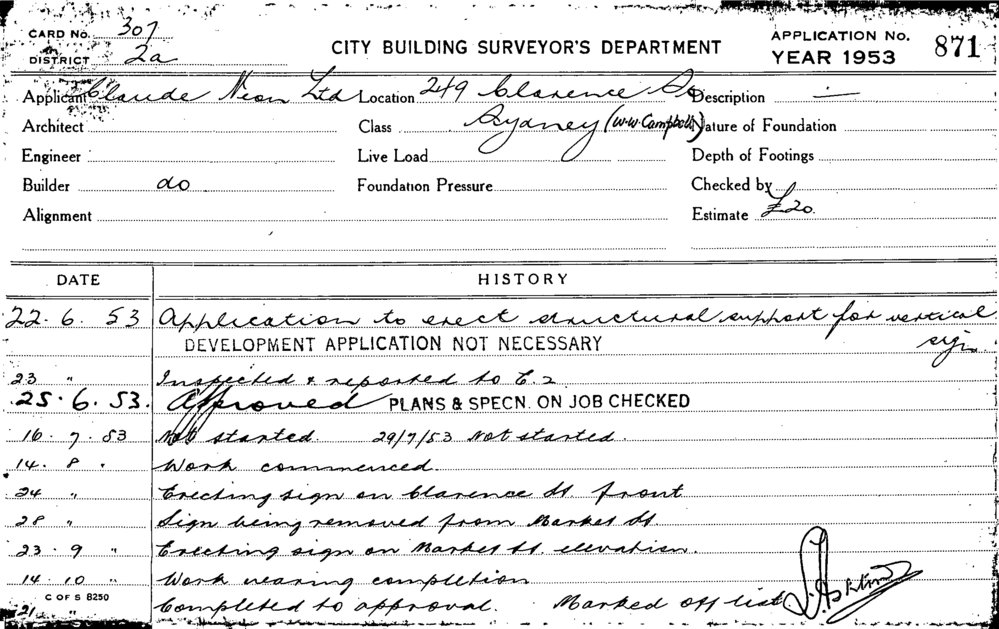 CARD No. 307
DISTRICT 2a
CITY BUILDING SURVEYOR'S DEPARTMENT
APPLICATION No. 871
YEAR 1953
Applicant Claude Neon Ltd Location 249 Clarence St Description —
Architect Class Sydney (W.W. Campbell) Nature of Foundation
Engineer Live Load Depth of Footings
Builder do Foundation Pressure Checked by
Alignment Estimate £20.
DATE HISTORY
22.6.53 Application to erect structural support for vertical
sign
DEVELOPMENT APPLICATION NOT NECESSARY
23 " Inspected & reported to E.2
25.6.53. Approved PLANS & SPECN. ON JOB CHECKED
16.7.53 Not started. 29/7/53 Not started.
14.8 " Work commenced.
24 " Erecting sign on Clarence St front
28 " Sign being removed from Market St.
23.9 " Erecting sign on Market St. elevation.
14.10 " Work nearing completion
C OF S 8250
21 " Completed to approval. Marked off list